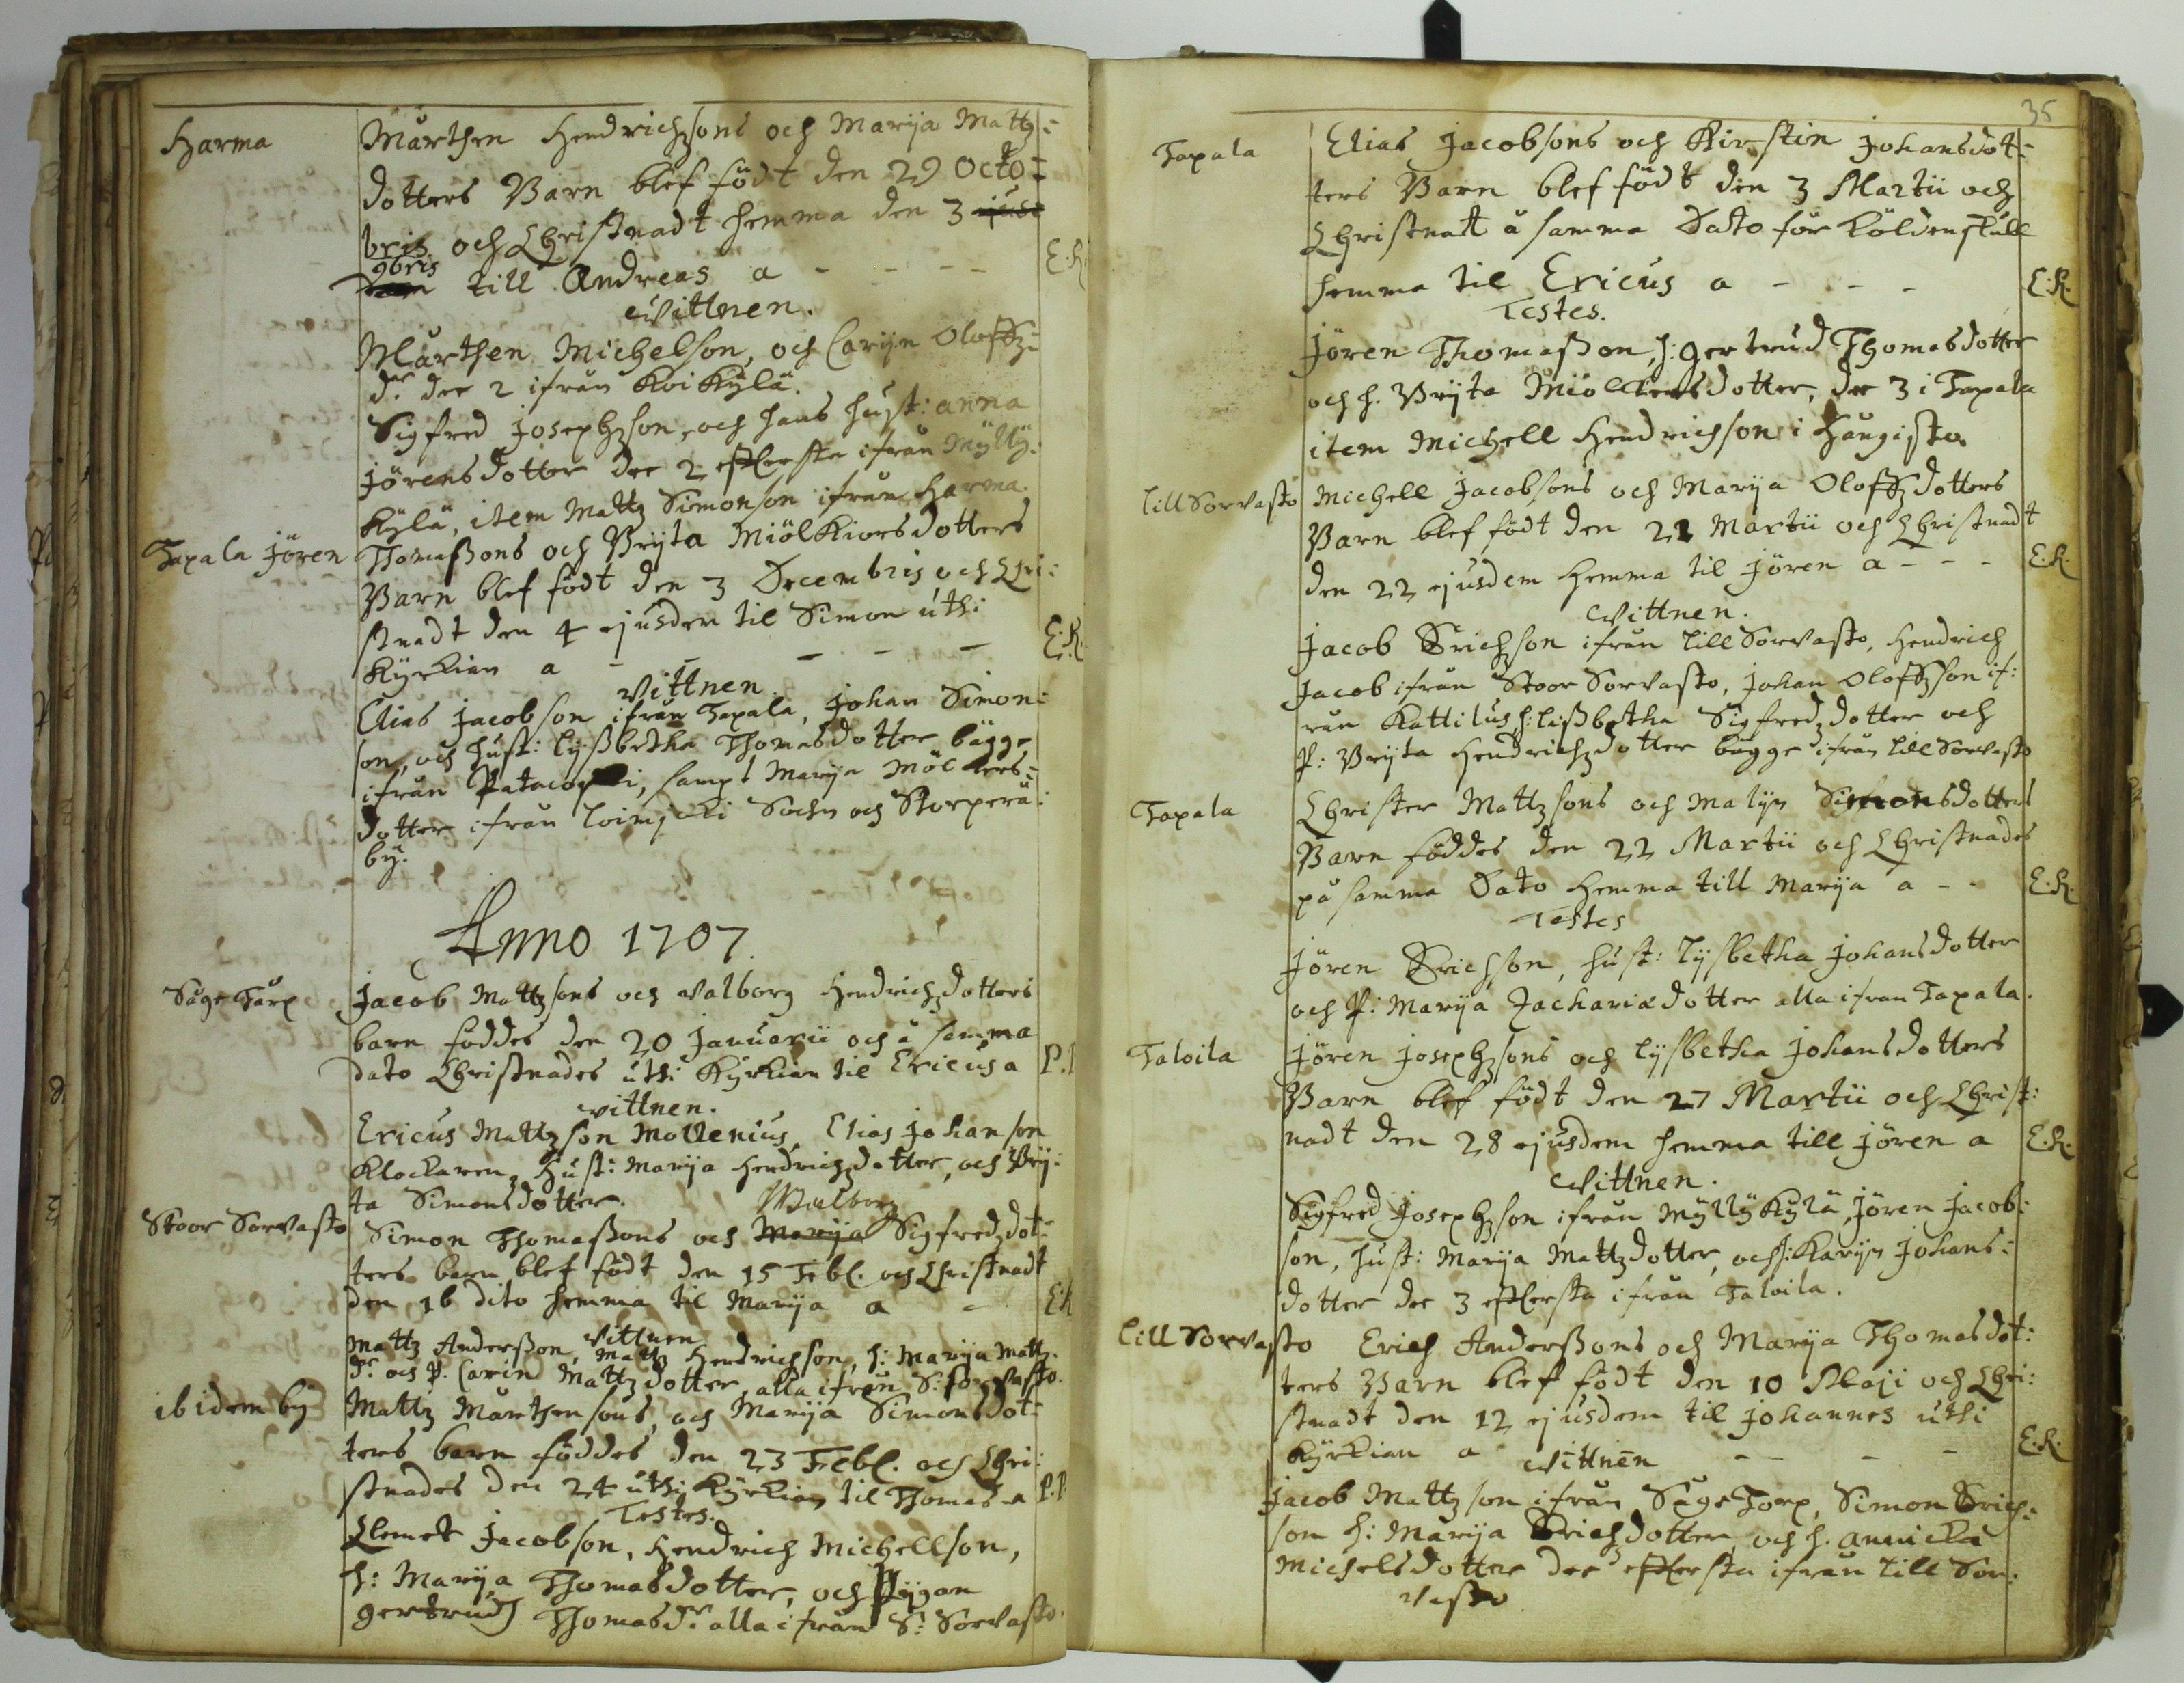 Harma
Mårthen Hendrichsons och Marija Mattz=
dotters Barn blef födt den 29 Octo=
bris och Christnadt hemma den 3 ejusd
9bris
till Andreas a - - - - E.K.
Vittnen.
Mårthen Michelson, och Carijn Oloffz=
dr. de 2 ifrån Koikylä.
Sigfred Josephzson, och hans hust: anna
Jörensdotter de 2 efterste ifrån Mylly=
kylä, item Mattz Simonson ifrån Harma.
Tapala Jören Thomassons och Bryta Miölkiorsdotters
Barn blef födt den 3 Decembris och Chri=
stnadt den 4 ejusdem til Simon uthi
Kyrkian a - - - - - E.K.
Vittnen.
Elias Jacobson ifrån Tapala, Johan Simon=
son, och hust: Lyssbetha Thomasdotter bägge
ifrån, sampt Marija Möllers=
dotter ifrån Loimjoki Sochn och Skorperä
by.
Anno 1707.
Såge Tårp
Jacob Mattzsons och Valborg Hendrichzdotters
barn föddes den 20 Januarii och å samma
dato Christnades uthi Kyrkian til Ericus a P.P.
vittnen.
Ericus Mattzson Mollenius, Elias Johanson
Klockaren, Hust: Marija Hendrichzdotter, och Bry=
ta Simonsdotter.
Stoor Sorvasto
Walborg
Simon Thomassons och Marija Sigfredzdot=
ters barn blef födt den 15 Febl. och Christnadt
den 16 dito hemma til Marija a - E.K.
Vittnen
Mattz Andersson, Mattz Hendrichson, h: Marija Mattz=
dr. och P. Carin Mattzdotter, alla ifrån S: Sorvasto.
ibidem by
Mattz Mårthensons, och Marija Simonsdot=
ters barn föddes den 23 Febl. och Chri=
stnades den 24 uthi Kyrkian til Thomas a P.P.
Testes.
Clemet Jacobson, Hendrich Michellson,
h: Marija Thomasdotter, och Pijgan
gertrud Thomasdr. alla ifrån S: Sorvasto.
35
Tapala
Elias Jacobsons och Kirstin Johansdot=
ters Barn blef födt den 3 Martii och
Christnatt å samma Dato för köldenskull
hemma til Ericus a - - - E.K.
Testes.
Jören Thomasson, h: gertrud Thomasdotter
och h. Bryta Miölkersdotter, de 3 i Tapala
item Michell Hendrichson i Haugisto.
Lill Sorvasto
Michell Jacobsons och Marija Oloffzdotters
Barn blef födt den 21 Martii och Christnadt
den 22 ejusdem Hemma til Jören a - - - E.K.
Vittnen.
Jacob Erichson ifrån Lill Sorvasto, Hendrich
Jacob ifrån Stoor Sorvasto, Johan Oloffzson if=
rån Kattilus h: Lissbetha Sigfredzdotter och
P: Bryta Hendrichzdotter bägge ifrån Lill Sorvasto
Tapala
Christer Mattzsons och Malijn Simonsdotters
Barn föddes den 22 Martii och Christnades
på samma Dato Hemma till Marija a - - E.K.
Testes
Jören Erichson, hust: Lysbetha Johansdotter
och P: Marija Zachariædotter alla ifrån Tapala.
Taloila
Jören Josephzsons och Lysbetha Johansdotters
Barn blef födt den 27 Martii och Christ=
nadt den 28 ejusdem hemma till Jören a E.K.
Vittnen.
Sigfred Josephzson ifrån Myllykylä, Jören Jacob=
son, hust: Marija Mattzdotter, och h: Karijn Johans=
dotter de 3 efterste ifrån Taloila.
Lill Sorvasto
Erich Anderssons och Marija Thomasdot=
ters Barn blef födt den 10 Maji och Chri=
stnadt den 12 ejusdem til Johannes uthi
Kyrkian a - - - - E.K.
Vittnen
Jacob Mattzson ifrån Såge Torp, Simon Erich=
son h: Marija Erichdotter, och h. annicka
Michelsdotter de 3 efterste ifrån Lill Sor=
vasto